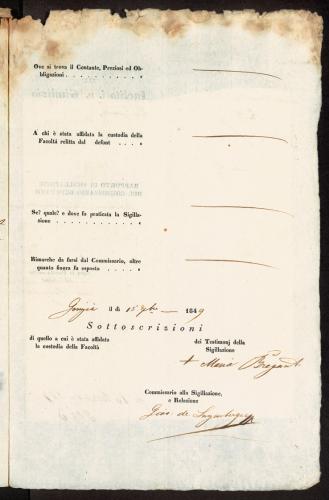 Ove si trova il Contante, Preziosi ed Ob-
bligazioni . . . . . . . . . . .
A chi è stata affidata la custodia della
Facoltà relitta dal defunt . . . .
Se? quale? e dove fu praticata la Sigilla-
zione . . . . . . . . . . . . .
Rimarche da farsi dal Commissario, oltre
quanto finora fu esposto . . . . .
Gorizia il di 15 9bre 1849
Sottoscrizioni
di quello a cui è stata affidato
la custodia della Facoltà
dei Testimonj della
Sigillazione
+ Maria Bregant
Commissario alla Sigillazione,
e Relazione
Gius. de